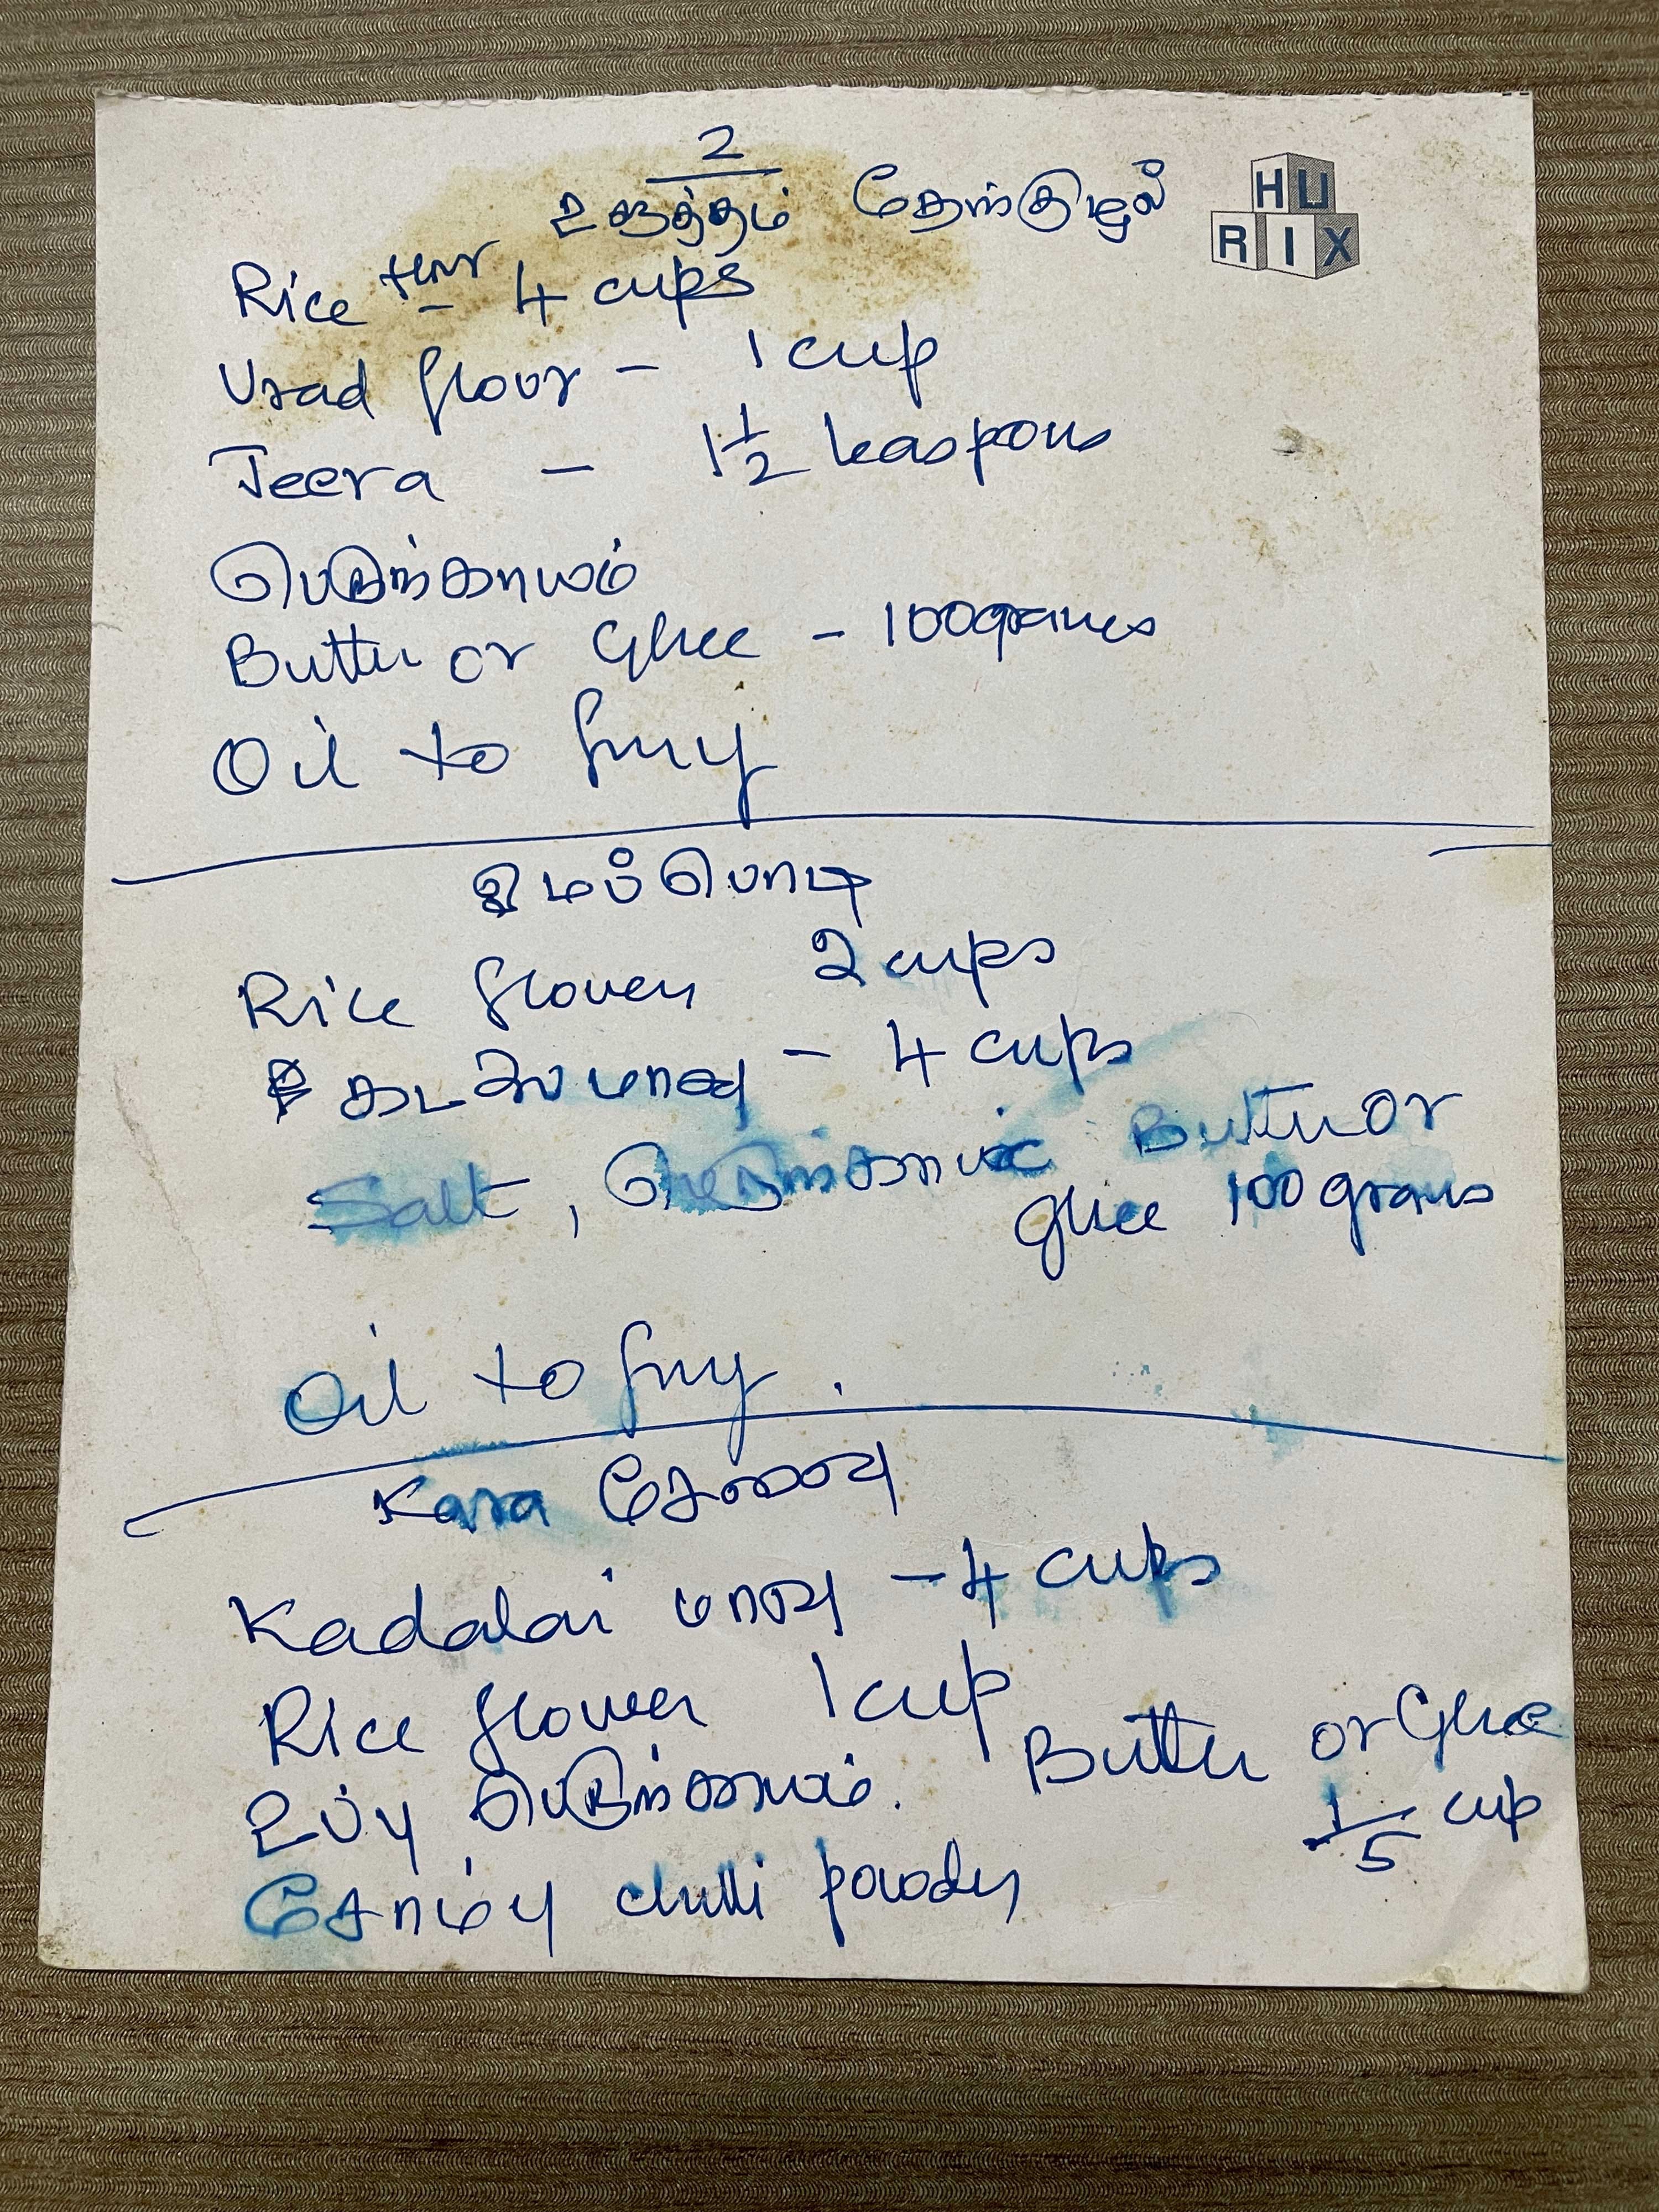 2
உளுத்தம் தேன்குழல்
HU
RIX
Rice flour - 4 cups
Urad flour - 1 cup
Jeera - 1 1/2 teaspons
பெருங்காயம்
Butter or Ghee - 100grames
Oil to fry
ஓமப்பொடி
Rice flower 2 cups
கடலைமாவு - 4 cups
Salt, பெருங்காயம் Butter or
ghee 100 grams
Oil to fry.
Kara சேவை
Kadalai மாவு - 4 cups
Rice flower 1 cup
Butter or Ghee
உப்பு பெருங்காயம்.
1/5 cup
சோம்பு chilli powder